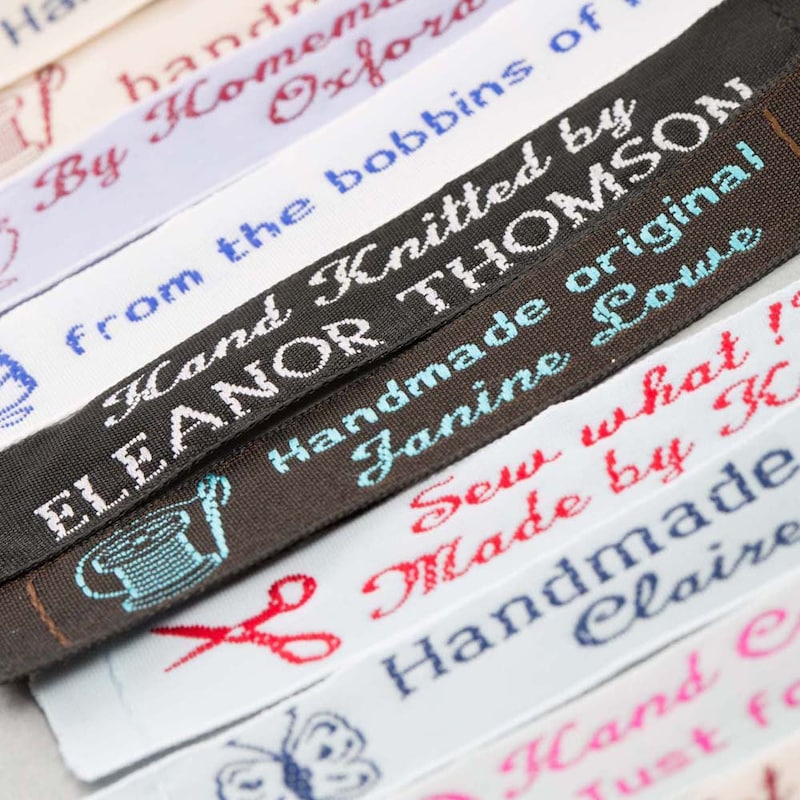 By Homema
Oxford
from the bobbins of
Hand Knitted by
ELEANOR THOMSON
Handmade original
Janine Lowe
Sew what !
Made by K
Handmade
Claire
Hand C
Just fo